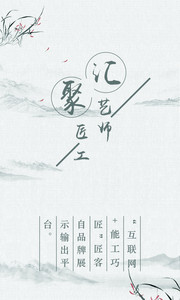 汇艺师
聚匠工
“互联网
+能工巧
匠”匠客
自品牌展
示输出平
台。